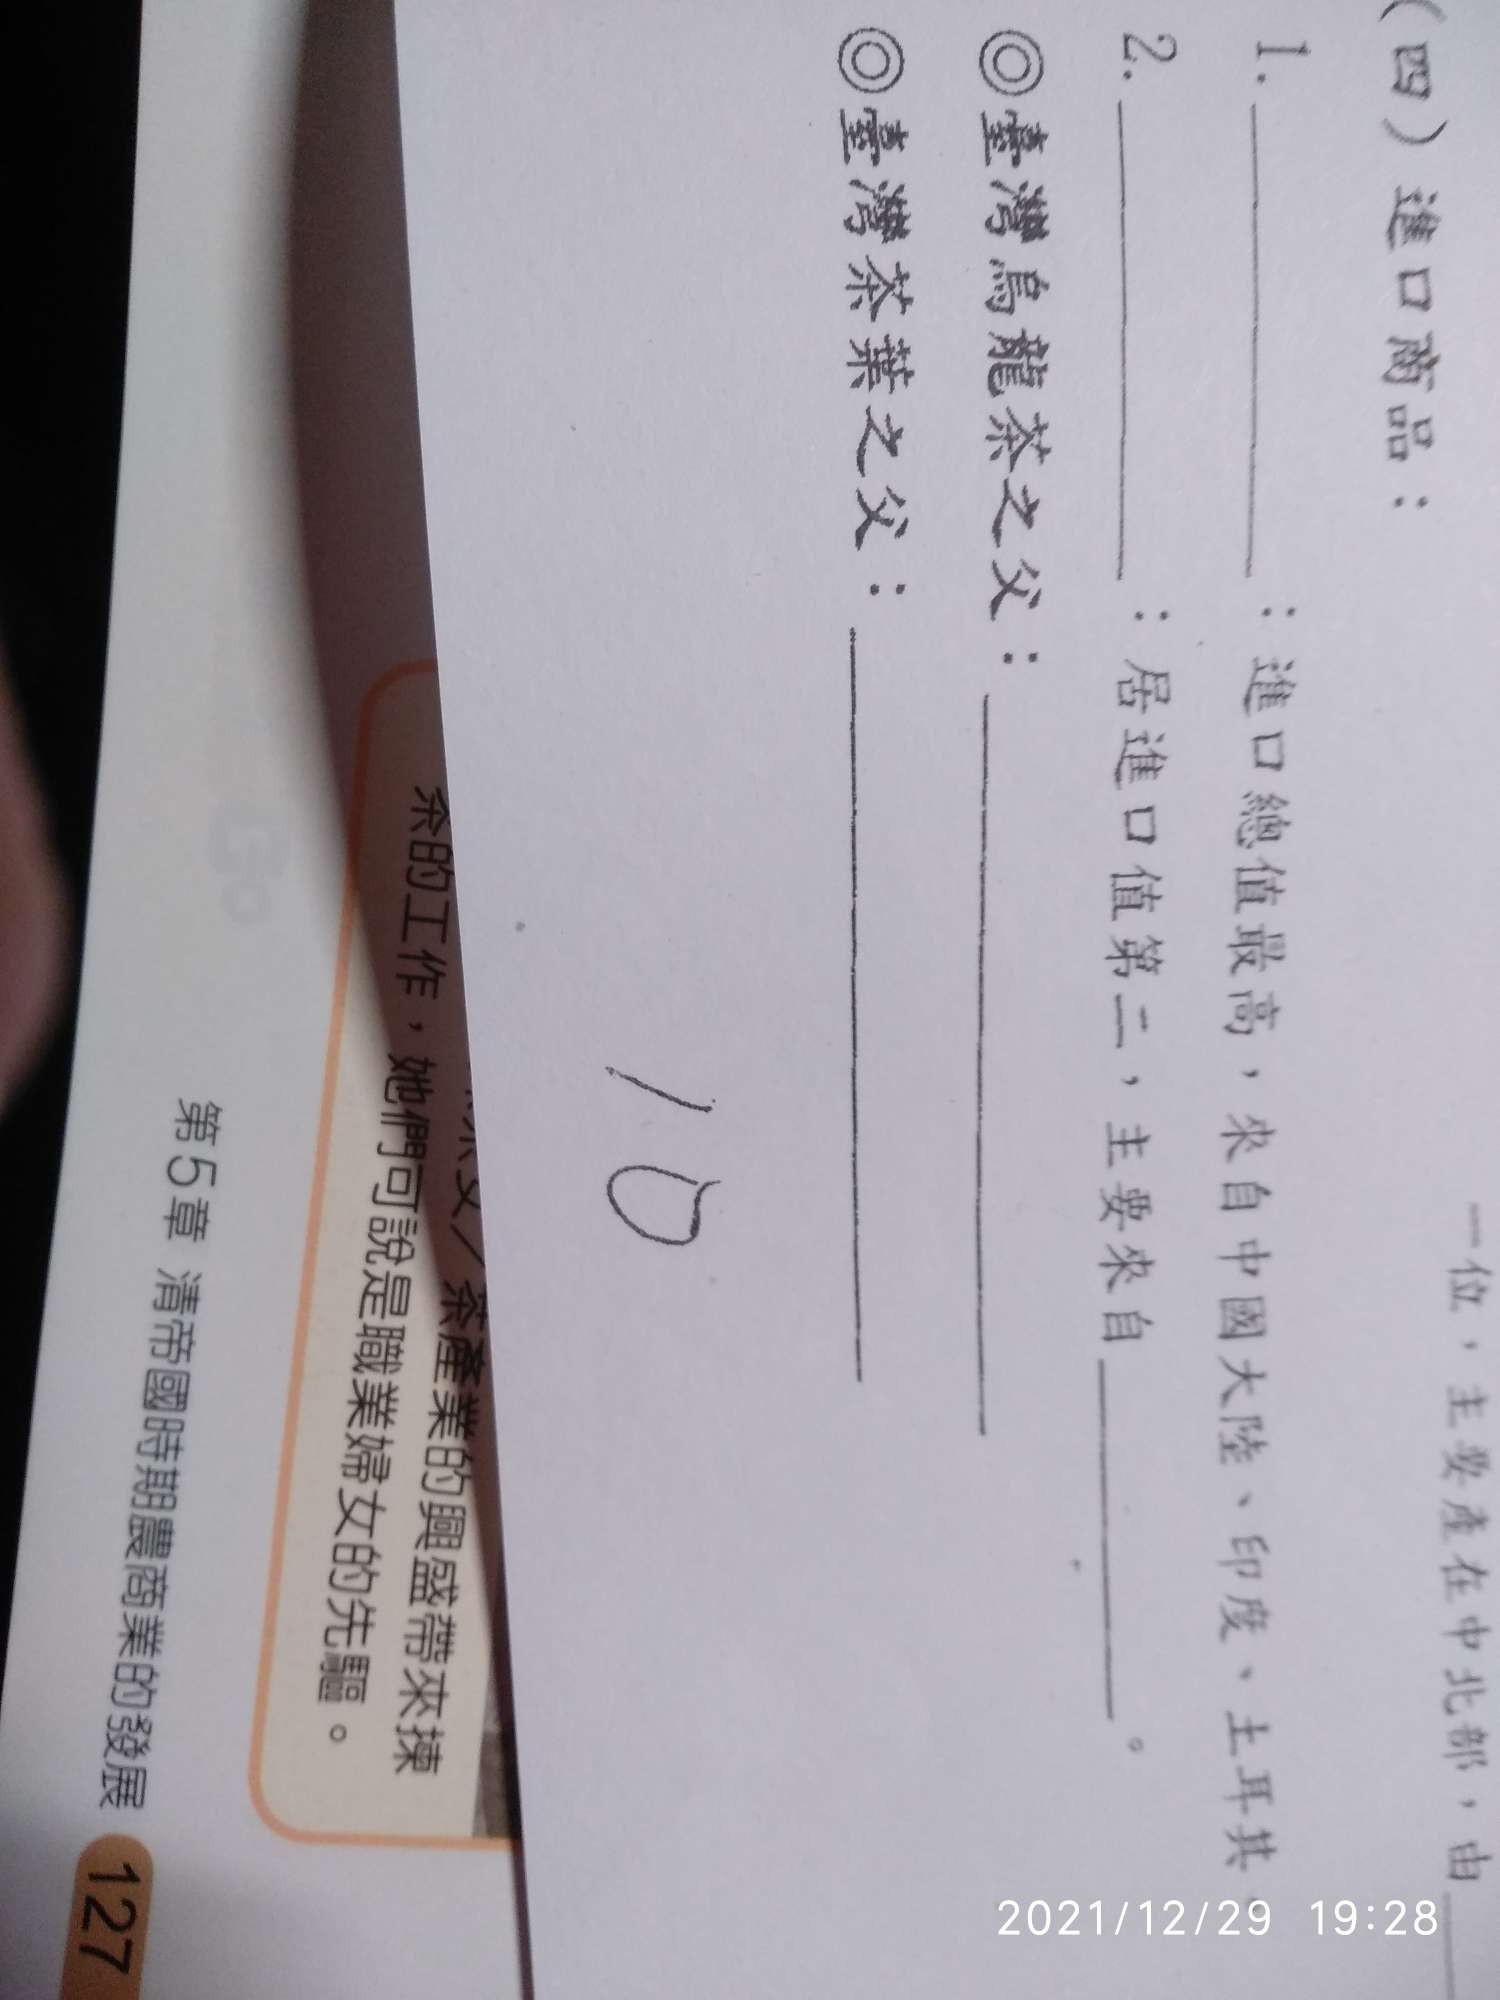 一位,主要產在中北部,由
(四)進口商品:
1. :進口總值最高,來自中國大陸、印度、土耳其。
2. :居進口值第二,主要來自 。
◎臺灣烏龍茶之父:
◎臺灣茶葉之父:
10
茶產業的興盛帶來揀
茶的工作,她們可說是職業婦女的先驅。
第5章 清帝國時期農商業的發展 127
2021/12/29 19:28